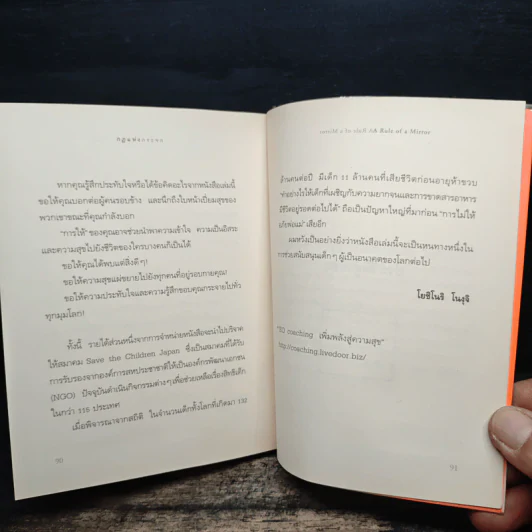 กฎแห่งกระจก
หากคุณรู้สึกประทับใจหรือได้ข้อคิดอะไรจากหนังสือเล่มนี้
ขอให้คุณบอกต่อผู้คนรอบข้าง และนึกถึงใบหน้าเปี่ยมสุขของ
พวกเขาขณะที่คุณกำลังบอก
"การให้" ของคุณอาจช่วยนำพาความเข้าใจ ความเป็นอิสระ
และความสุขไปยังชีวิตของใครบางคนก็เป็นได้
ขอให้คุณได้พบแต่สิ่งดีๆ!
ขอให้ความสุขแผ่ขยายไปยังทุกคนที่อยู่รอบกายคุณ!
ขอให้ความประทับใจและความรู้สึกขอบคุณกระจายไปทั่ว
ทุกมุมโลก!
ทั้งนี้ รายได้ส่วนหนึ่งจากการจำหน่ายหนังสือจะนำไปบริจาค
ให้สมาคม Save the Children Japan ซึ่งเป็นสมาคมที่ได้รับ
การรับรองจากองค์การสหประชาชาติให้เป็นองค์กรพัฒนาเอกชน
(NGO) ปัจจุบันดำเนินกิจกรรมต่างๆ เพื่อช่วยเหลือเรื่องสิทธิเด็ก
ในกว่า 115 ประเทศ
เมื่อพิจารณาจากสถิติ ในจำนวนเด็กทั้งโลกที่เกิดมา 132
90
A Rule of a Mirror
ล้านคนต่อปี มีเด็ก 11 ล้านคนที่เสียชีวิตก่อนอายุห้าขวบ
"ทำอย่างไรให้เด็กที่เผชิญกับความยากจนและการขาดสารอาหาร
มีชีวิตอยู่รอดต่อไปได้" ถือเป็นปัญหาใหญ่ที่มาก่อน "การไม่ให้
อภัยพ่อแม่" เสียอีก
ผมหวังเป็นอย่างยิ่งว่าหนังสือเล่มนี้จะเป็นหนทางหนึ่งใน
การช่วยสนับสนุนเด็กๆ ผู้เป็นอนาคตของโลกต่อไป
โยชิโนริ โนงุจิ
coaching เพิ่มพลังสู่ความสุข"
coaching.livedoor.biz/
91